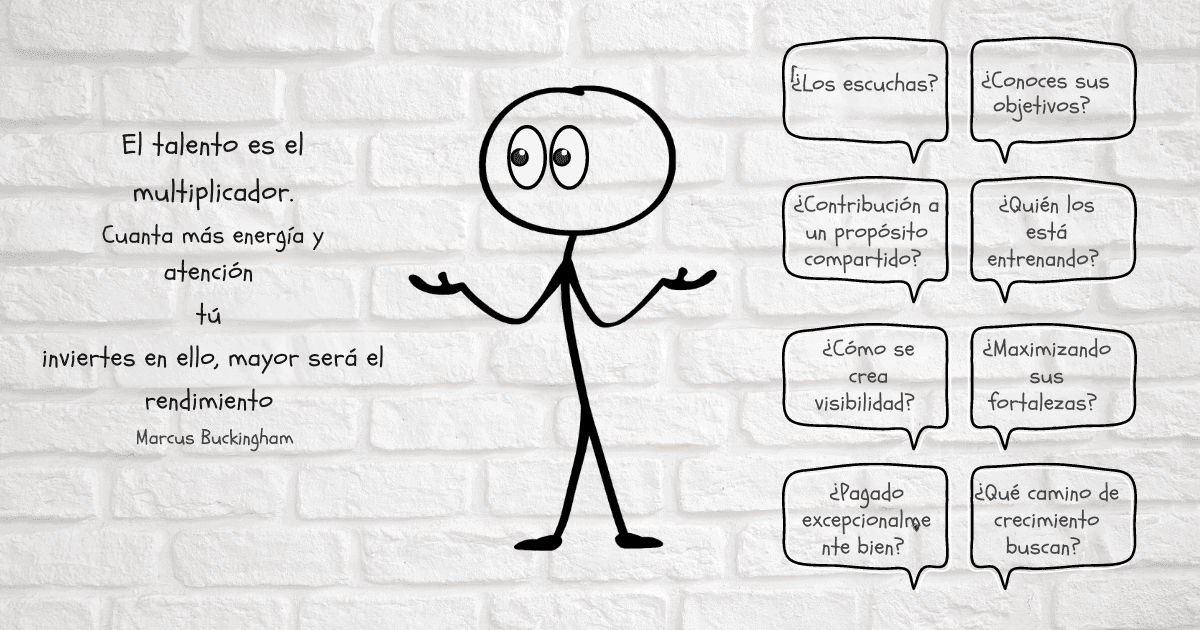 El talento es el
multiplicador.
Cuanta más energía y
atención
tú
inviertes en ello, mayor será el
rendimiento
Marcus Buckingham
¿Los escuchas?
¿Conoces sus
objetivos?
¿Contribución a
un propósito
compartido?
¿Quién los
está
entrenando?
¿Cómo se
crea
visibilidad?
¿Maximizando
sus
fortalezas?
¿Pagado
excepcionalme
nte bien?
¿Qué camino de
crecimiento
buscan?